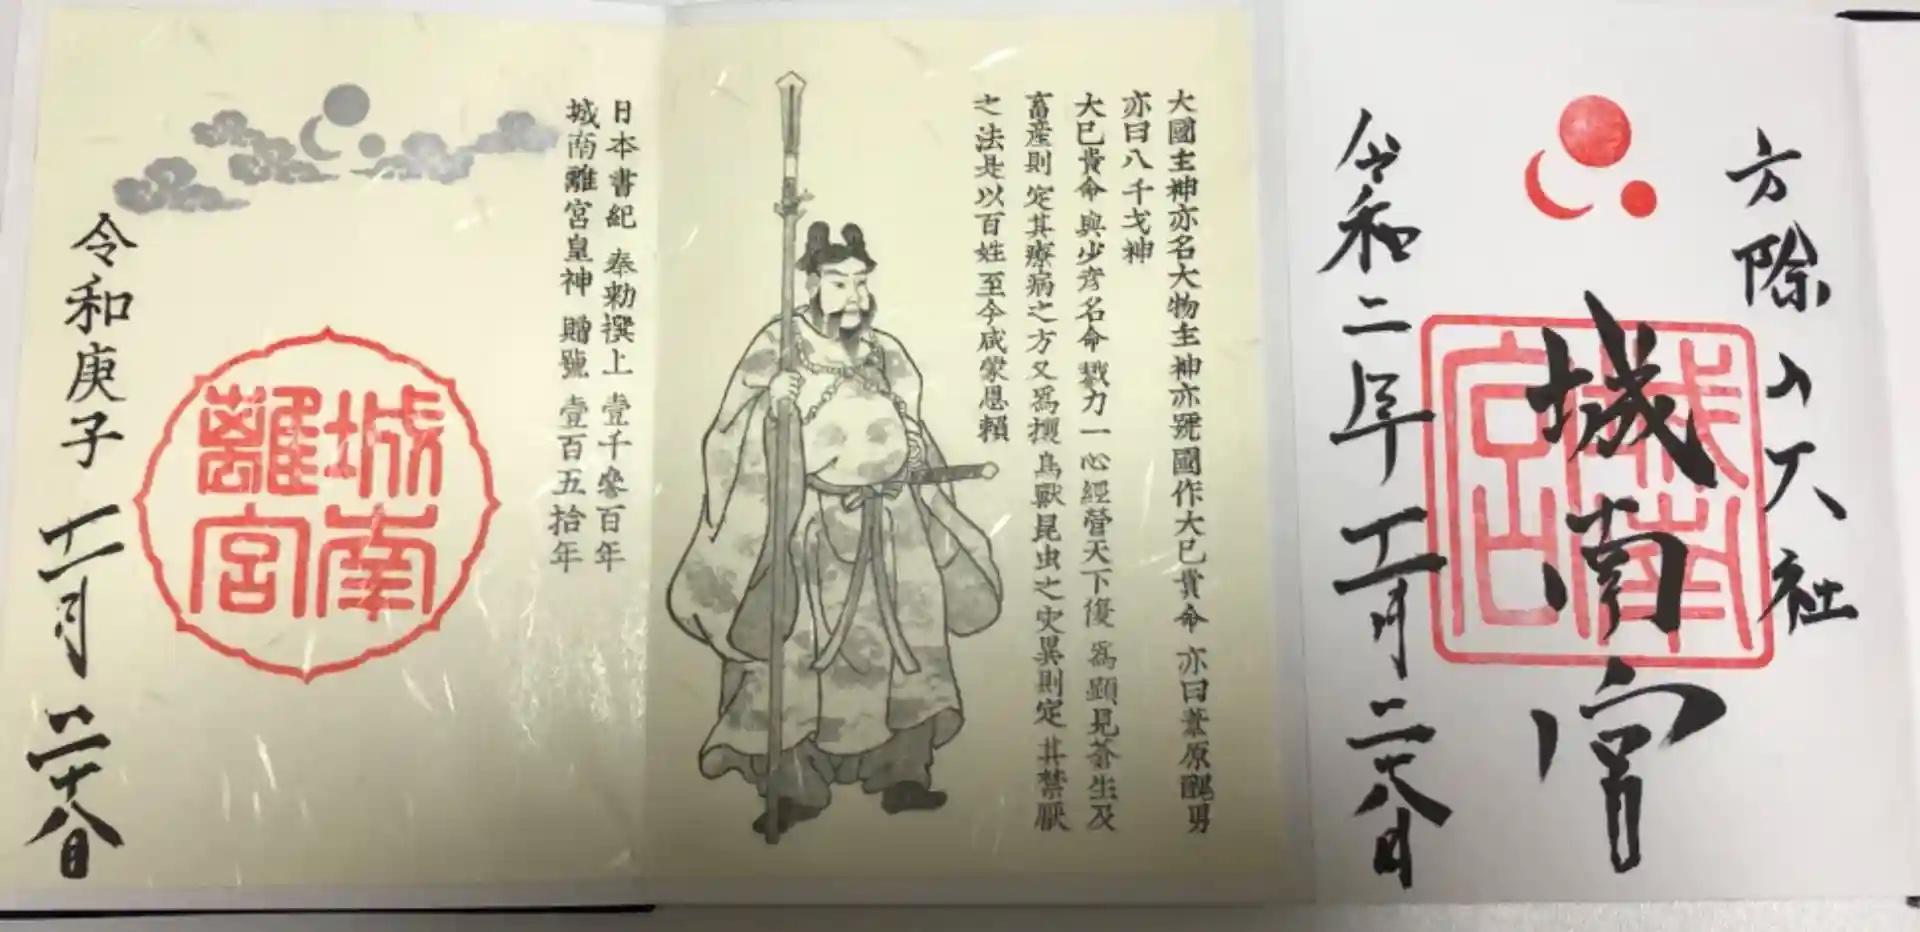 方除の大社
城南宮
城南宮
令和二年十一月二十八日
大國主神亦名大物主神亦號國作大己貴命亦曰葦原醜男
亦曰八千戈神
大己貴命與少彦名命戮力一心經營天下復爲顯見蒼生及
畜産則定其療病之方又爲攘鳥獸昆虫之灾異則定其禁厭
之法是以百姓至今咸蒙恩頼
日本書紀 奉勅撰上 壹千參百年
城南離宮皇神 贈號 壹百五拾年
城南
離宮
令和庚子 十一月二十八日